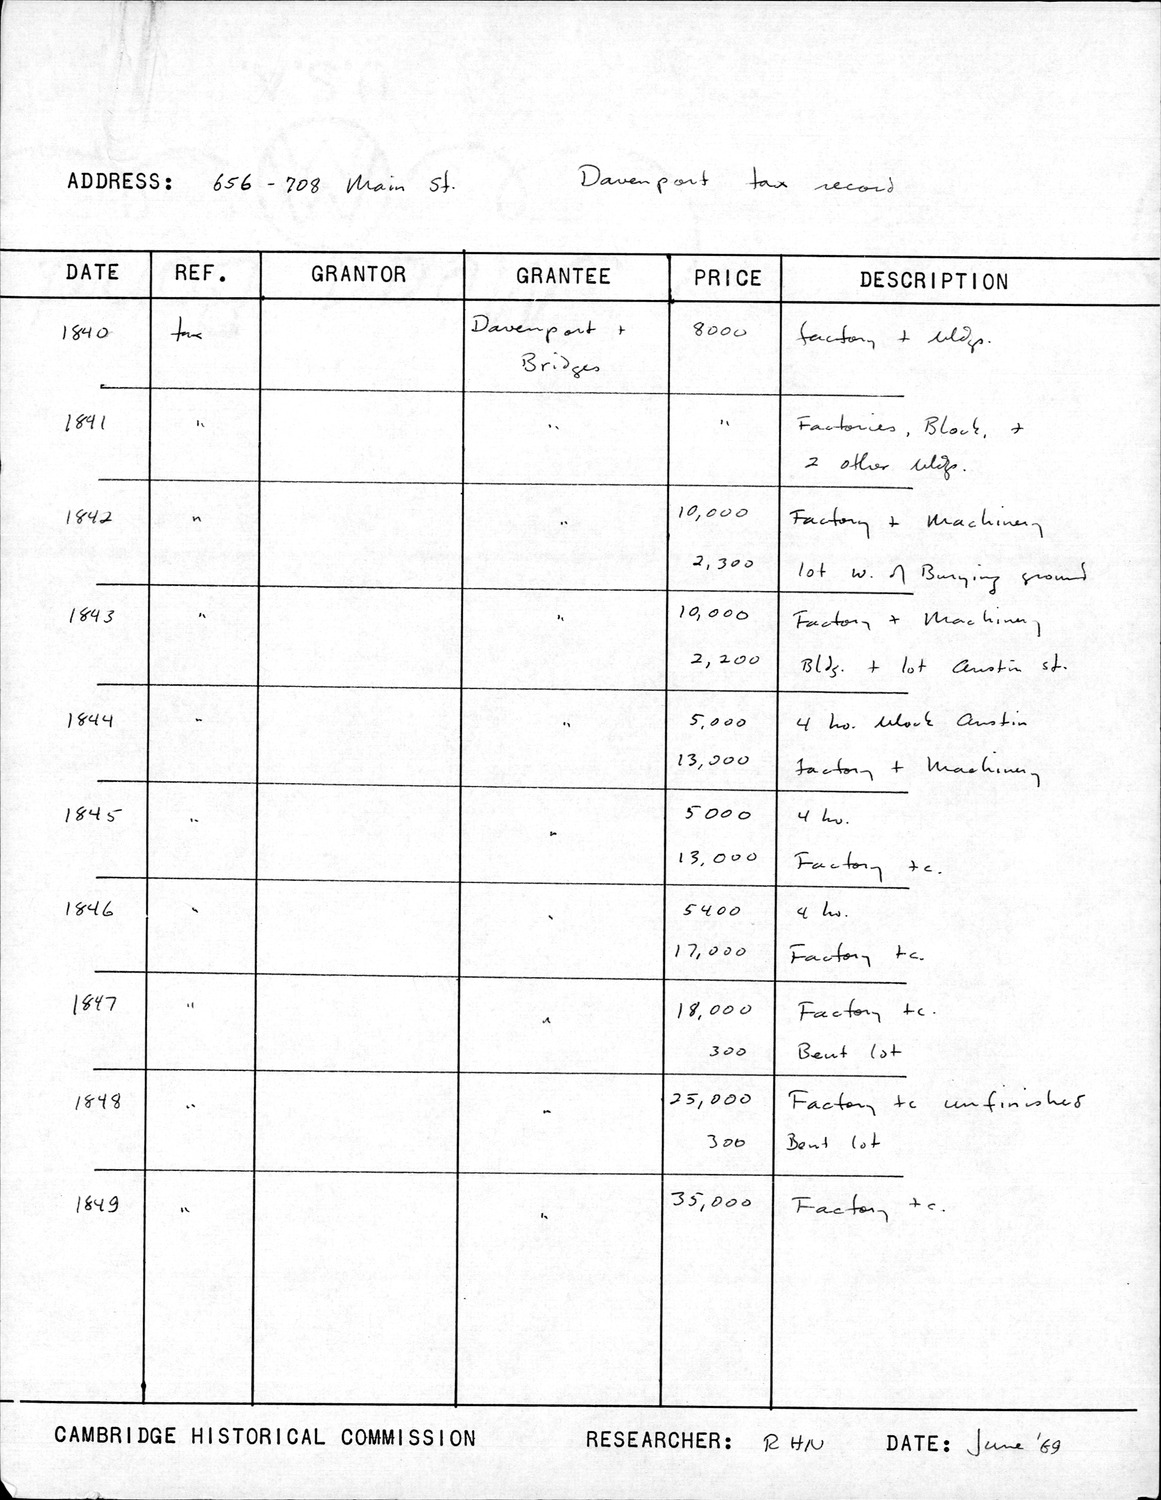 ADDRESS: 656 - 708 Main St. Davenport tax record
DATE REF. GRANTOR GRANTEE PRICE DESCRIPTION
1840 tax Davenport + 8000 factory + bldgs.
Bridges
1841 " " " Factories, Block, +
2 other bldgs.
1842 " " 10,000 Factory + Machinery
2,300 lot w. of Burying ground
1843 " " 10,000 Factory + Machinery
2,200 Bldg. + lot Austin st.
1844 " " 5,000 4 ho. block Austin
13,000 factory + Machinery
1845 " " 5000 4 ho.
13,000 Factory +c.
1846 " " 5400 4 ho.
17,000 Factory +c.
1847 " " 18,000 Factory +c.
300 Bent lot
1848 " " 25,000 Factory +c unfinished
300 Bent lot
1849 " " 35,000 Factory +c.
CAMBRIDGE HISTORICAL COMMISSION RESEARCHER: RHN DATE: June '69